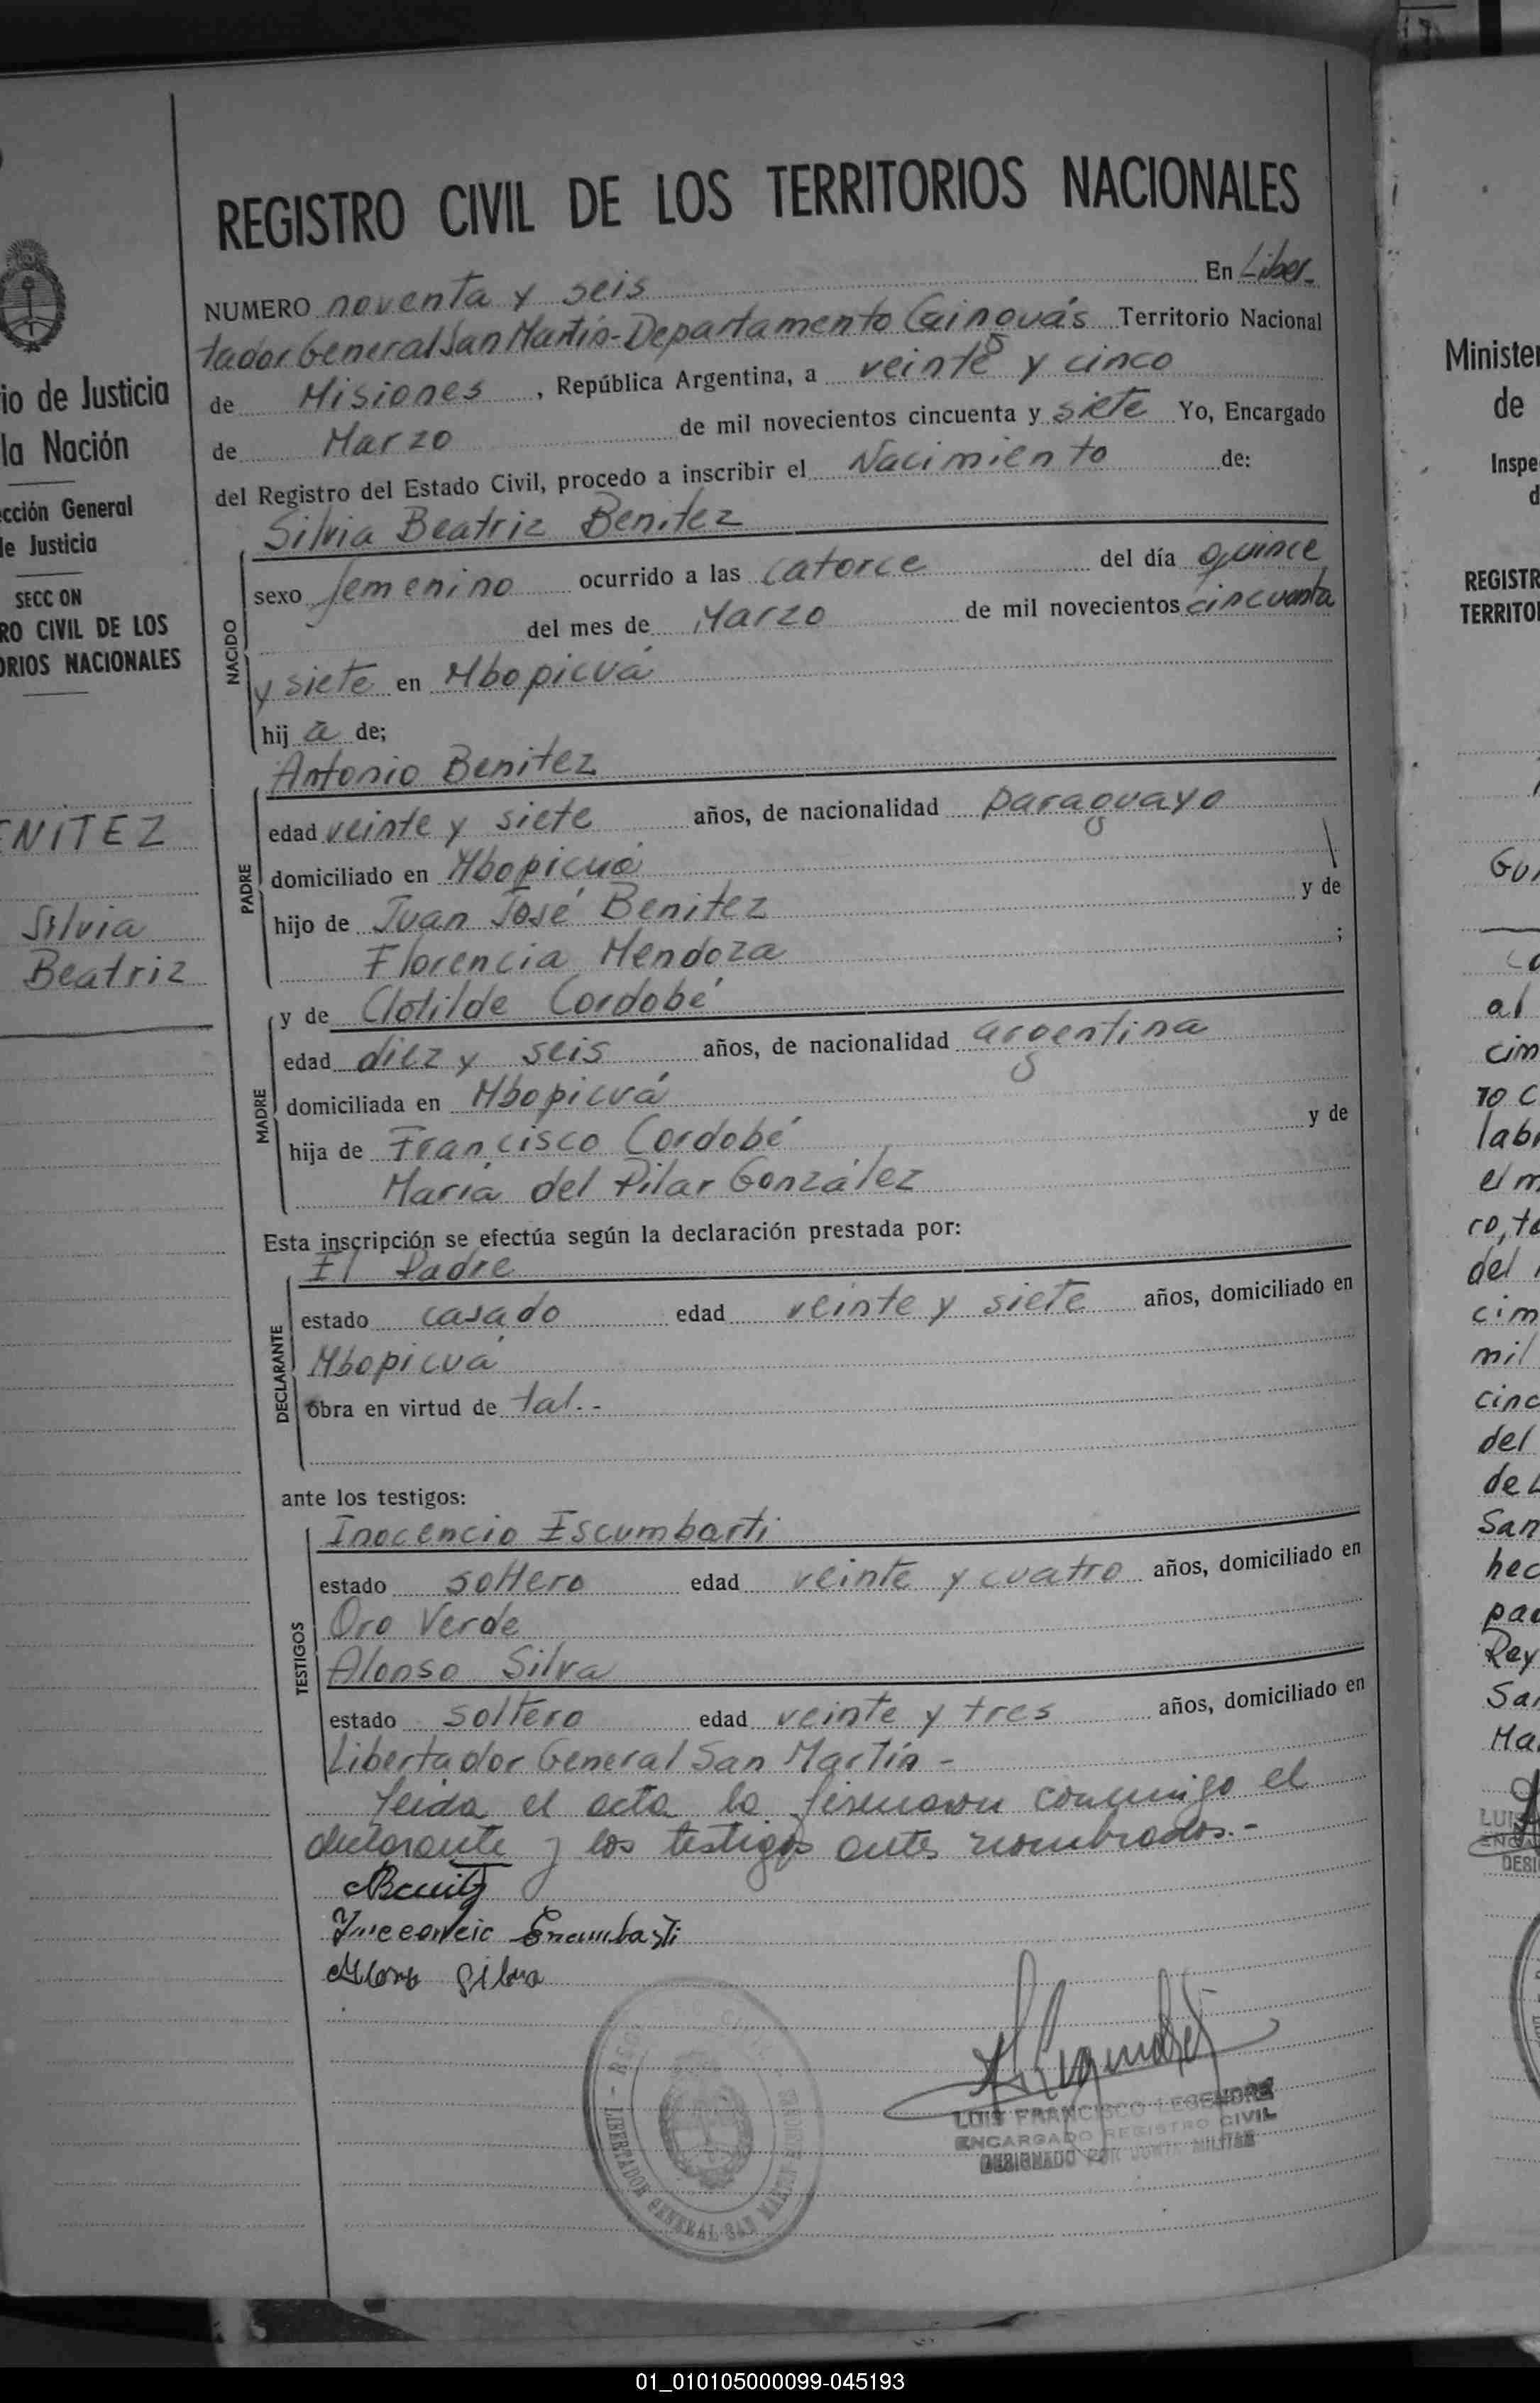 REGISTRO CIVIL DE LOS TERRITORIOS NACIONALES
NUMERO noventa y seis En Liber-
tador General San Martín-Departamento Cainguás Territorio Nacional
de Misiones, República Argentina, a veinte y cinco
de Marzo de mil novecientos cincuenta y siete Yo, Encargado
del Registro del Estado Civil, procedo a inscribir el Nacimiento de:
Silvia Beatriz Benitez
NACIDO
sexo femenino ocurrido a las catorce del día quince
del mes de Marzo de mil novecientos cincuenta
y siete en Mbopicuá
hij a de;
Antonio Benitez
PADRE
edad veinte y siete años, de nacionalidad paraguayo
domiciliado en Mbopicuá
hijo de Juan José Benitez y de
Florencia Mendoza ;
y de Clotilde Cordobé
MADRE
edad diez y seis años, de nacionalidad argentina
domiciliada en Mbopicuá
hija de Francisco Cordobé y de
María del Pilar González
Esta inscripción se efectúa según la declaración prestada por:
El Padre
DECLARANTE
estado casado edad veinte y siete años, domiciliado en
Mbopicuá
obra en virtud de tal.-
ante los testigos:
Inocencio Escumbarti
TESTIGOS
estado soltero edad veinte y cuatro años, domiciliado en
Oro Verde
Alonso Silva
estado soltero edad veinte y tres años, domiciliado en
Libertador General San Martín -
Leida el acta la firmaron conmigo el
declarante y los testigos antes nombrados.-
ABenitz
Alonso Silva
LUIS FRANCISCO LEGENDRE
ENCARGADO REGISTRO CIVIL
DESIGNADO POR JUNTA MILITAR
LIBERTADOR GENERAL SAN MARTIN
io de Justicia
la Nación
cción General
de Justicia
SECC ON
RO CIVIL DE LOS
ORIOS NACIONALES
ENITEZ
Silvia
Beatriz
Minister
de
Inspe
d
REGISTR
TERRITO
al
cim
10 C
lab
el m
ro, to
del
cim
mil
cinc
del
de L
San
hec
pa
Rey
Sa
Ma
LUI
ENCA
DESI
01_010105000099-045193